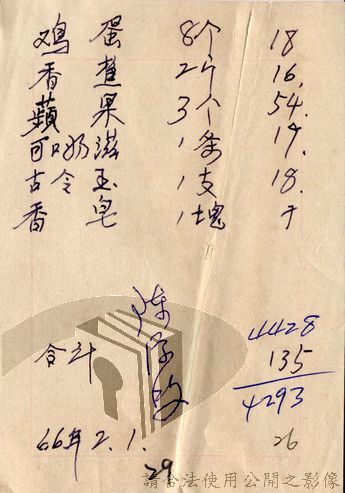 鸡蛋 8个 18
香蕉 2个 16.
蘋果 3个 54.
可口奶滋 1条 17.
古令玉 1支 18.
香皂 1塊
4428
135
4293
合计
66年2.1.
26
29
請合法使用公開之影像